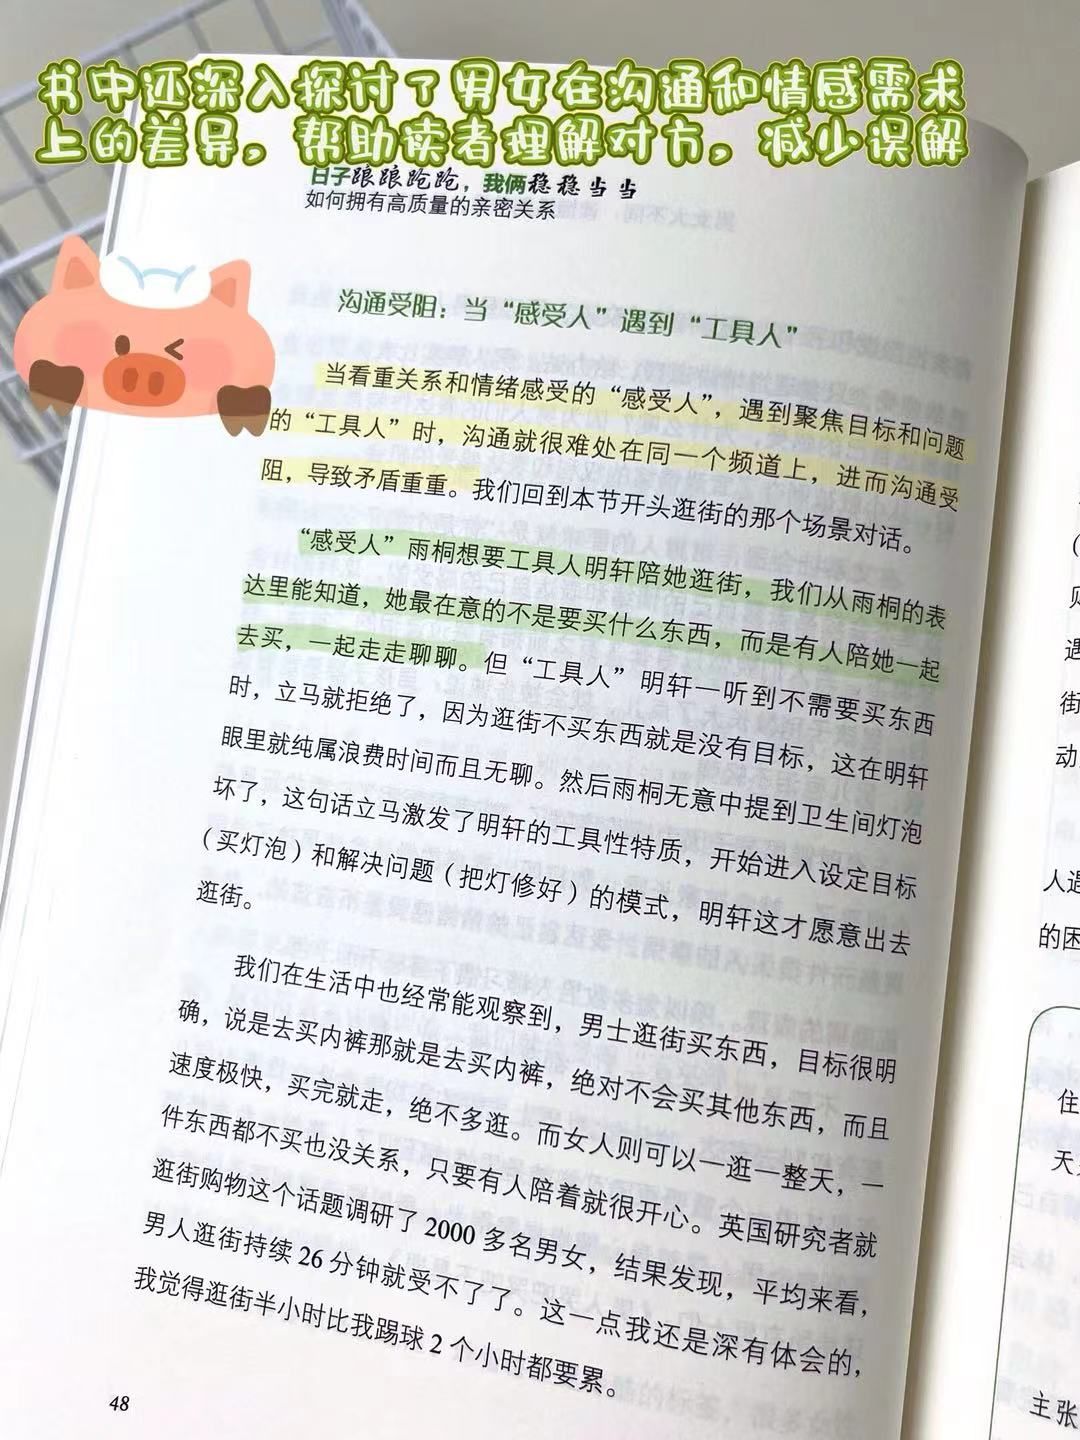 书中还深入探讨了男女在沟通和情感需求
上的差异，帮助读者理解对方，减少误解
日子踉踉跄跄，我俩稳稳当当
如何拥有高质量的亲密关系
沟通受阻：当“感受人”遇到“工具人”
当看重关系和情绪感受的“感受人”，遇到聚焦目标和问题
的“工具人”时，沟通就很难处在同一个频道上，进而沟通受
阻，导致矛盾重重。我们回到本节开头逛街的那个场景对话。
“感受人”雨桐想要工具人明轩陪她逛街，我们从雨桐的表
达里能知道，她最在意的不是要买什么东西，而是有人陪她一起
去买，一起走走聊聊。但“工具人”明轩一听到不需要买东西
时，立马就拒绝了，因为逛街不买东西就是没有目标，这在明轩
眼里就纯属浪费时间而且无聊。然后雨桐无意中提到卫生间灯泡
坏了，这句话立马激发了明轩的工具性特质，开始进入设定目标
（买灯泡）和解决问题（把灯修好）的模式，明轩这才愿意出去
逛街。
我们在生活中也经常能观察到，男士逛街买东西，目标很明
确，说是去买内裤那就是去买内裤，绝对不会买其他东西，而且
速度极快，买完就走，绝不多逛。而女人则可以一逛一整天，一
件东西都不买也没关系，只要有人陪着就很开心。英国研究者就
逛街购物这个话题调研了2000多名男女，结果发现，平均来看，
男人逛街持续26分钟就受不了了。这一点我还是深有体会的，
我觉得逛街半小时比我踢球2个小时都要累。
48
（
则
遇
街
动
人遇
的困
住
天
主张